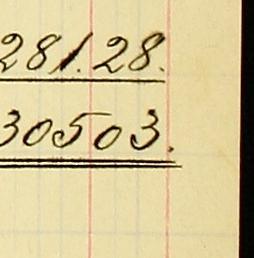 281.28.
30503.